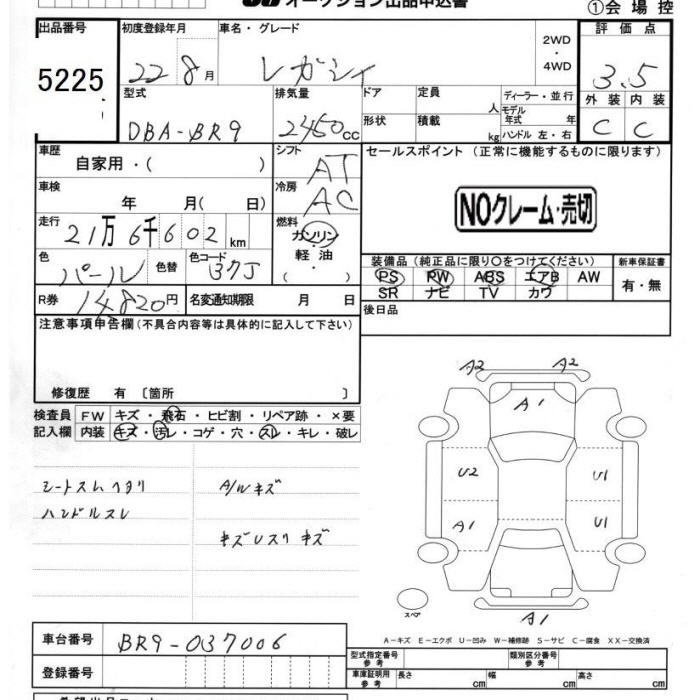 オークション出品申込書
①会場控
出品番号
5225
初度登録年月
22 8月
車名・グレード
レガシィ
2WD
・
4WD
評価点
3.5
外装 内装
C C
型式
DBA-BR9
排気量
2450cc
ドア
形状
定員 人
積載 kg
ディーラー・並行
モデル年式 年
ハンドル 左・右
車歴
自家用・( )
シフト
AT
車検
年 月( 日)
冷房
AC
セールスポイント (正常に機能するものに限ります)
NOクレーム・売切
走行
21万6千602km
燃料
ガソリン・
軽油
( ・ )
色
パール
色替
色コード
37J
装備品(純正品に限り〇をつけてください)
PS PW ABS エアB AW
SR ナビ TV カワ
新車保証書
有・無
R券
14820円
名変通知期限 月 日
後日品
注意事項申告欄(不具合内容等は具体的に記入して下さい)
修復歴 有 〔箇所 〕
検査員
記入欄
FW キズ・飛石・ヒビ割・リペア跡・×要
内装 キズ・汚レ・コゲ・穴・スレ・キレ・破レ
シートスレヘタリ
ハンドルスレ
A/Wキズ
キズUスリキズ
A2 A2
A1
U2 U1
A1 U1
スペア
A1
A-キズ E-エクボ U-凹み W-補修跡 S-サビ C-腐食 XX-交換済
車台番号
BR9-037006
登録番号
型式指定番号
参考
類別区分番号
参考
車庫証明用
参考
長さ cm
幅 cm
高さ cm